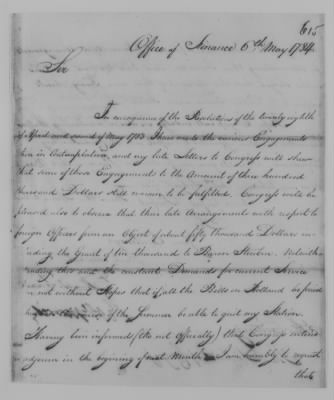 615
Office of Finance 6th May 1784
Sir
In consequence of the Resolutions of the twenty eighth
of April and second of May 1783 I have made the various Engagements
then in Contemplation, and my late Letters to Congress will shew
that some of those Engagements to the Amount of three hundred
thousand Dollars still remain to be fulfilled. Congress will be
pleased also to observe that their late Arrangements with respect to
foreign Officers form an Object of about fifty thousand Dollars
the Grant of ten thousand to Baron Steuben.
this and the constant Demands for current Service
not without Hopes that if all the Bills on Holland be paid
of the Summer be able to quit my Station.
Having been informed (tho not officially) that Congress intend
adjourn in the begining of next Month I am humbly to request
that